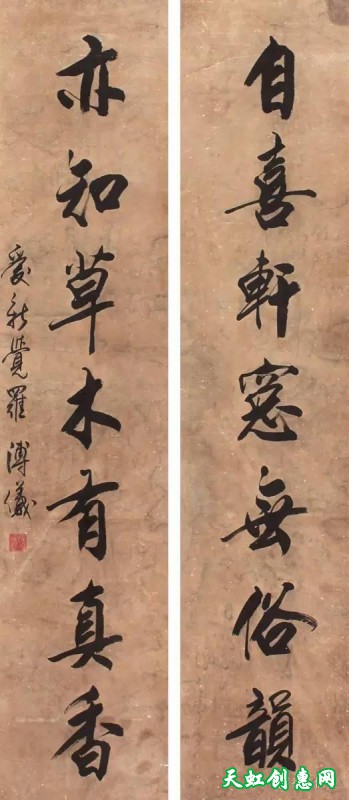 自喜軒窓無俗韻
亦知草木有真香
愛新覺羅溥儀
天虹创惠网